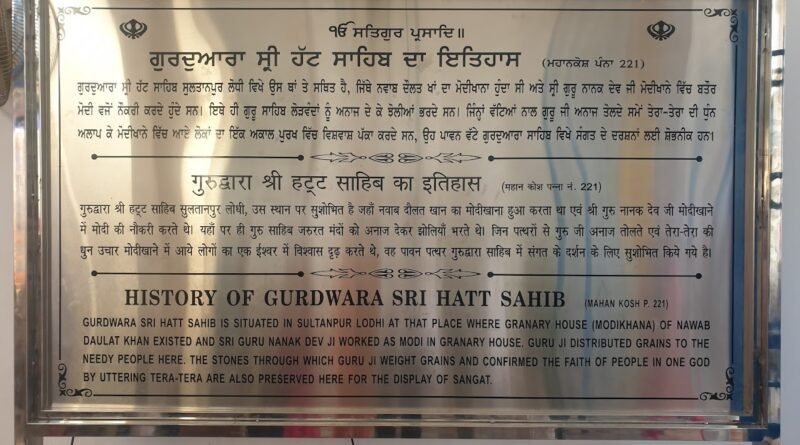 ੴ ਸਤਿਗੁਰ ਪ੍ਰਸਾਦਿ॥
ਗੁਰਦੁਆਰਾ ਸ੍ਰੀ ਹੱਟ ਸਾਹਿਬ ਦਾ ਇਤਿਹਾਸ (ਮਹਾਨਕੋਸ਼ ਪੰਨਾ 221)
ਗੁਰਦੁਆਰਾ ਸ੍ਰੀ ਹੱਟ ਸਾਹਿਬ ਸੁਲਤਾਨਪੁਰ ਲੋਧੀ ਵਿਖੇ ਉਸ ਥਾਂ ਤੇ ਸਥਿਤ ਹੈ, ਜਿੱਥੇ ਨਵਾਬ ਦੌਲਤ ਖਾਂ ਦਾ ਮੋਦੀਖਾਨਾ ਹੁੰਦਾ ਸੀ ਅਤੇ ਸ੍ਰੀ ਗੁਰੂ ਨਾਨਕ ਦੇਵ ਜੀ ਮੋਦੀਖਾਨੇ ਵਿੱਚ ਬਤੌਰ
ਮੋਦੀ ਵਜੋਂ ਨੌਕਰੀ ਕਰਦੇ ਹੁੰਦੇ ਸਨ। ਇਥੇ ਹੀ ਗੁਰੂ ਸਾਹਿਬ ਲੋੜਵੰਦਾਂ ਨੂੰ ਅਨਾਜ ਦੇ ਕੇ ਝੋਲੀਆਂ ਭਰਦੇ ਸਨ। ਜਿਨ੍ਹਾਂ ਵੱਟਿਆਂ ਨਾਲ ਗੁਰੂ ਜੀ ਅਨਾਜ ਤੋਲਦੇ ਸਮੇਂ ਤੇਰਾ-ਤੇਰਾ ਦੀ ਧੁੰਨ
ਅਲਾਪ ਕੇ ਮੋਦੀਖਾਨੇ ਵਿੱਚ ਆਏ ਲੋਕਾਂ ਦਾ ਇੱਕ ਅਕਾਲ ਪੁਰਖ ਵਿੱਚ ਵਿਸ਼ਵਾਸ਼ ਪੱਕਾ ਕਰਦੇ ਸਨ, ਉਹ ਪਾਵਨ ਵੱਟੇ ਗੁਰਦੁਆਰਾ ਸਾਹਿਬ ਵਿਖੇ ਸੰਗਤ ਦੇ ਦਰਸ਼ਨਾਂ ਲਈ ਸ਼ੋਭਨੀਕ ਹਨ।
गुरुद्वारा श्री हट्ट साहिब का इतिहास (महान कोश पन्ना नं. 221)
गुरुद्वारा श्री हट्ट साहिब सुलतानपुर लोधी, उस स्थान पर सुशोभित है जहाँ नवाब दौलत खान का मोदीखाना हुआ करता था एवं श्री गुरु नानक देव जी मोदीखाने
में मोदी की नौकरी करते थे। यहाँ पर ही गुरु साहिब जरुरत मंदों को अनाज देकर झोलियाँ भरते थे। जिन पत्थरों से गुरु जी अनाज तोलते एवं तेरा-तेरा की
धुन उचार मोदीखाने में आये लोगों का एक ईश्वर में विश्वास दृढ़ करते थे, वह पावन पत्थर गुरुद्वारा साहिब में संगत के दर्शन के लिए सुशोभित किये गये है।
HISTORY OF GURDWARA SRI HATT SAHIB (MAHAN KOSH P. 221)
GURDWARA SRI HATT SAHIB IS SITUATED IN SULTANPUR LODHI AT THAT PLACE WHERE GRANARY HOUSE (MODIKHANA) OF NAWAB
DAULAT KHAN EXISTED AND SRI GURU NANAK DEV JI WORKED AS MODI IN GRANARY HOUSE. GURU JI DISTRIBUTED GRAINS TO THE
NEEDY PEOPLE HERE. THE STONES THROUGH WHICH GURU JI WEIGHT GRAINS AND CONFIRMED THE FAITH OF PEOPLE IN ONE GOD
BY UTTERING TERA-TERA ARE ALSO PRESERVED HERE FOR THE DISPLAY OF SANGAT.